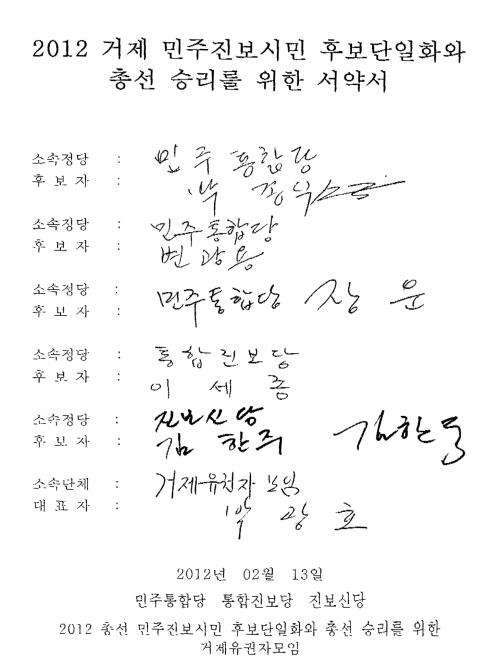 2012 거제 민주진보시민 후보단일화와
총선 승리를 위한 서약서
소속정당 : 민주통합당
후 보 자 : 박종식
소속정당 : 민주통합당
후 보 자 : 변광용
소속정당 : 민주통합당 장운
후 보 자 :
소속정당 : 통합진보당
후 보 자 : 이세종
소속정당 : 진보신당
후 보 자 : 김한주 김한주
소속단체 : 거제유권자모임
대 표 자 : 박광호
2012년 02월 13일
민주통합당 통합진보당 진보신당
2012 총선 민주진보시민 후보단일화와 총선 승리를 위한
거제유권자모임